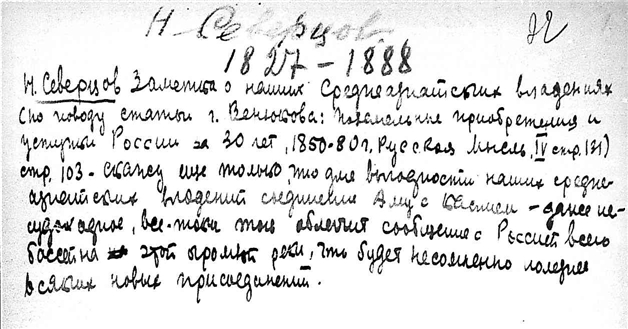 Н. Северцов
22
1827-1888
Н. Северцов Заметка о наших Среднеазиатских владениях
(по поводу статьи г. Венюкова: Поземельные приобретения и
уступки России за 30 лет, 1850-80 г., Русская Мысль, IV стр. 131)
стр. 103 - скажу еще только, что для выгодности наших средне-
азиатских владений соединение Аму с Каспием - даже не-
судоходное, все-таки
облегчит сообщение с Россией всего
бассейна этой огромной реки, что будет несомненно полезнее
всяких новых присоединений.